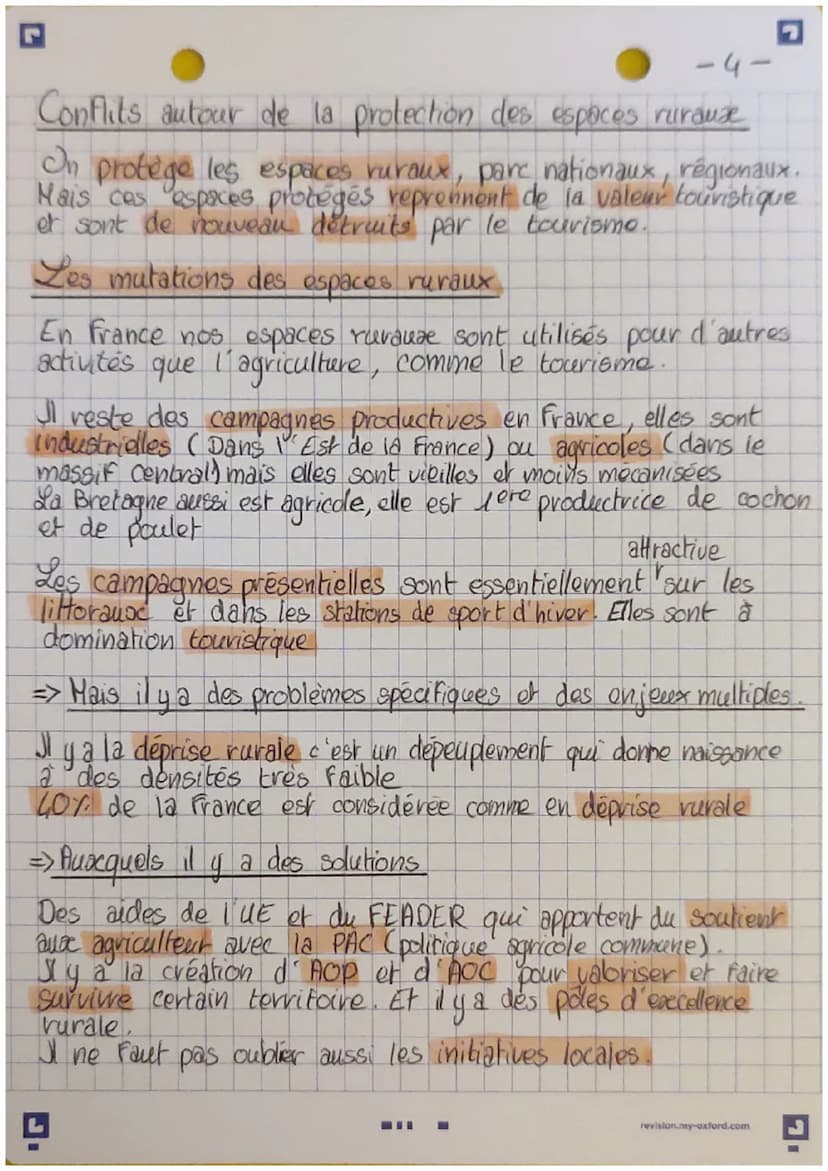 -4-
Conflits autour de la protection des espaces ruraux
On protège les espaces ruraux, parc nationaux, régionaux.
Mais ces espaces protégés reprennent de la valeur touristique
et sont de nouveau détruits par le tourisme.
Les mutations des espaces ruraux
En France nos espaces ruraux sont utilisés pour d'autres
activités que l'agriculture, comme le tourisme.
Il reste des campagnes productives en France, elles sont
industrielles (Dans l'Est de la France) ou agricoles (dans le
massif central) mais elles sont vieilles et moins mécanisées
La Bretagne aussi est agricole, elle est 1ere productrice de cochon
et de poulet
attractive
Les campagnes présentielles sont essentiellement sur les
littoraux et dans les stations de sport d'hiver. Elles sont à
domination touristique
=> Mais il y a des problèmes spécifiques et des enjeux multiples.
Il y a la déprise rurale c'est un dépeuplement qui donne naissance
à des densités très faible
40% de la France est considérée comme en déprise rurale
=> Auxquels il y a des solutions
Des aides de l'UE et du FEADER qui apportent du soutient
aux agriculteur avec la PAC (politique agricole commune).
Il y a la création d'AOP et d'AOC pour valoriser et faire
survivre certain territoire. Et il y a des pôles d'excellence
rurale.
Il ne faut pas oublier aussi les initiatives locales.
revision.my-oxford.com